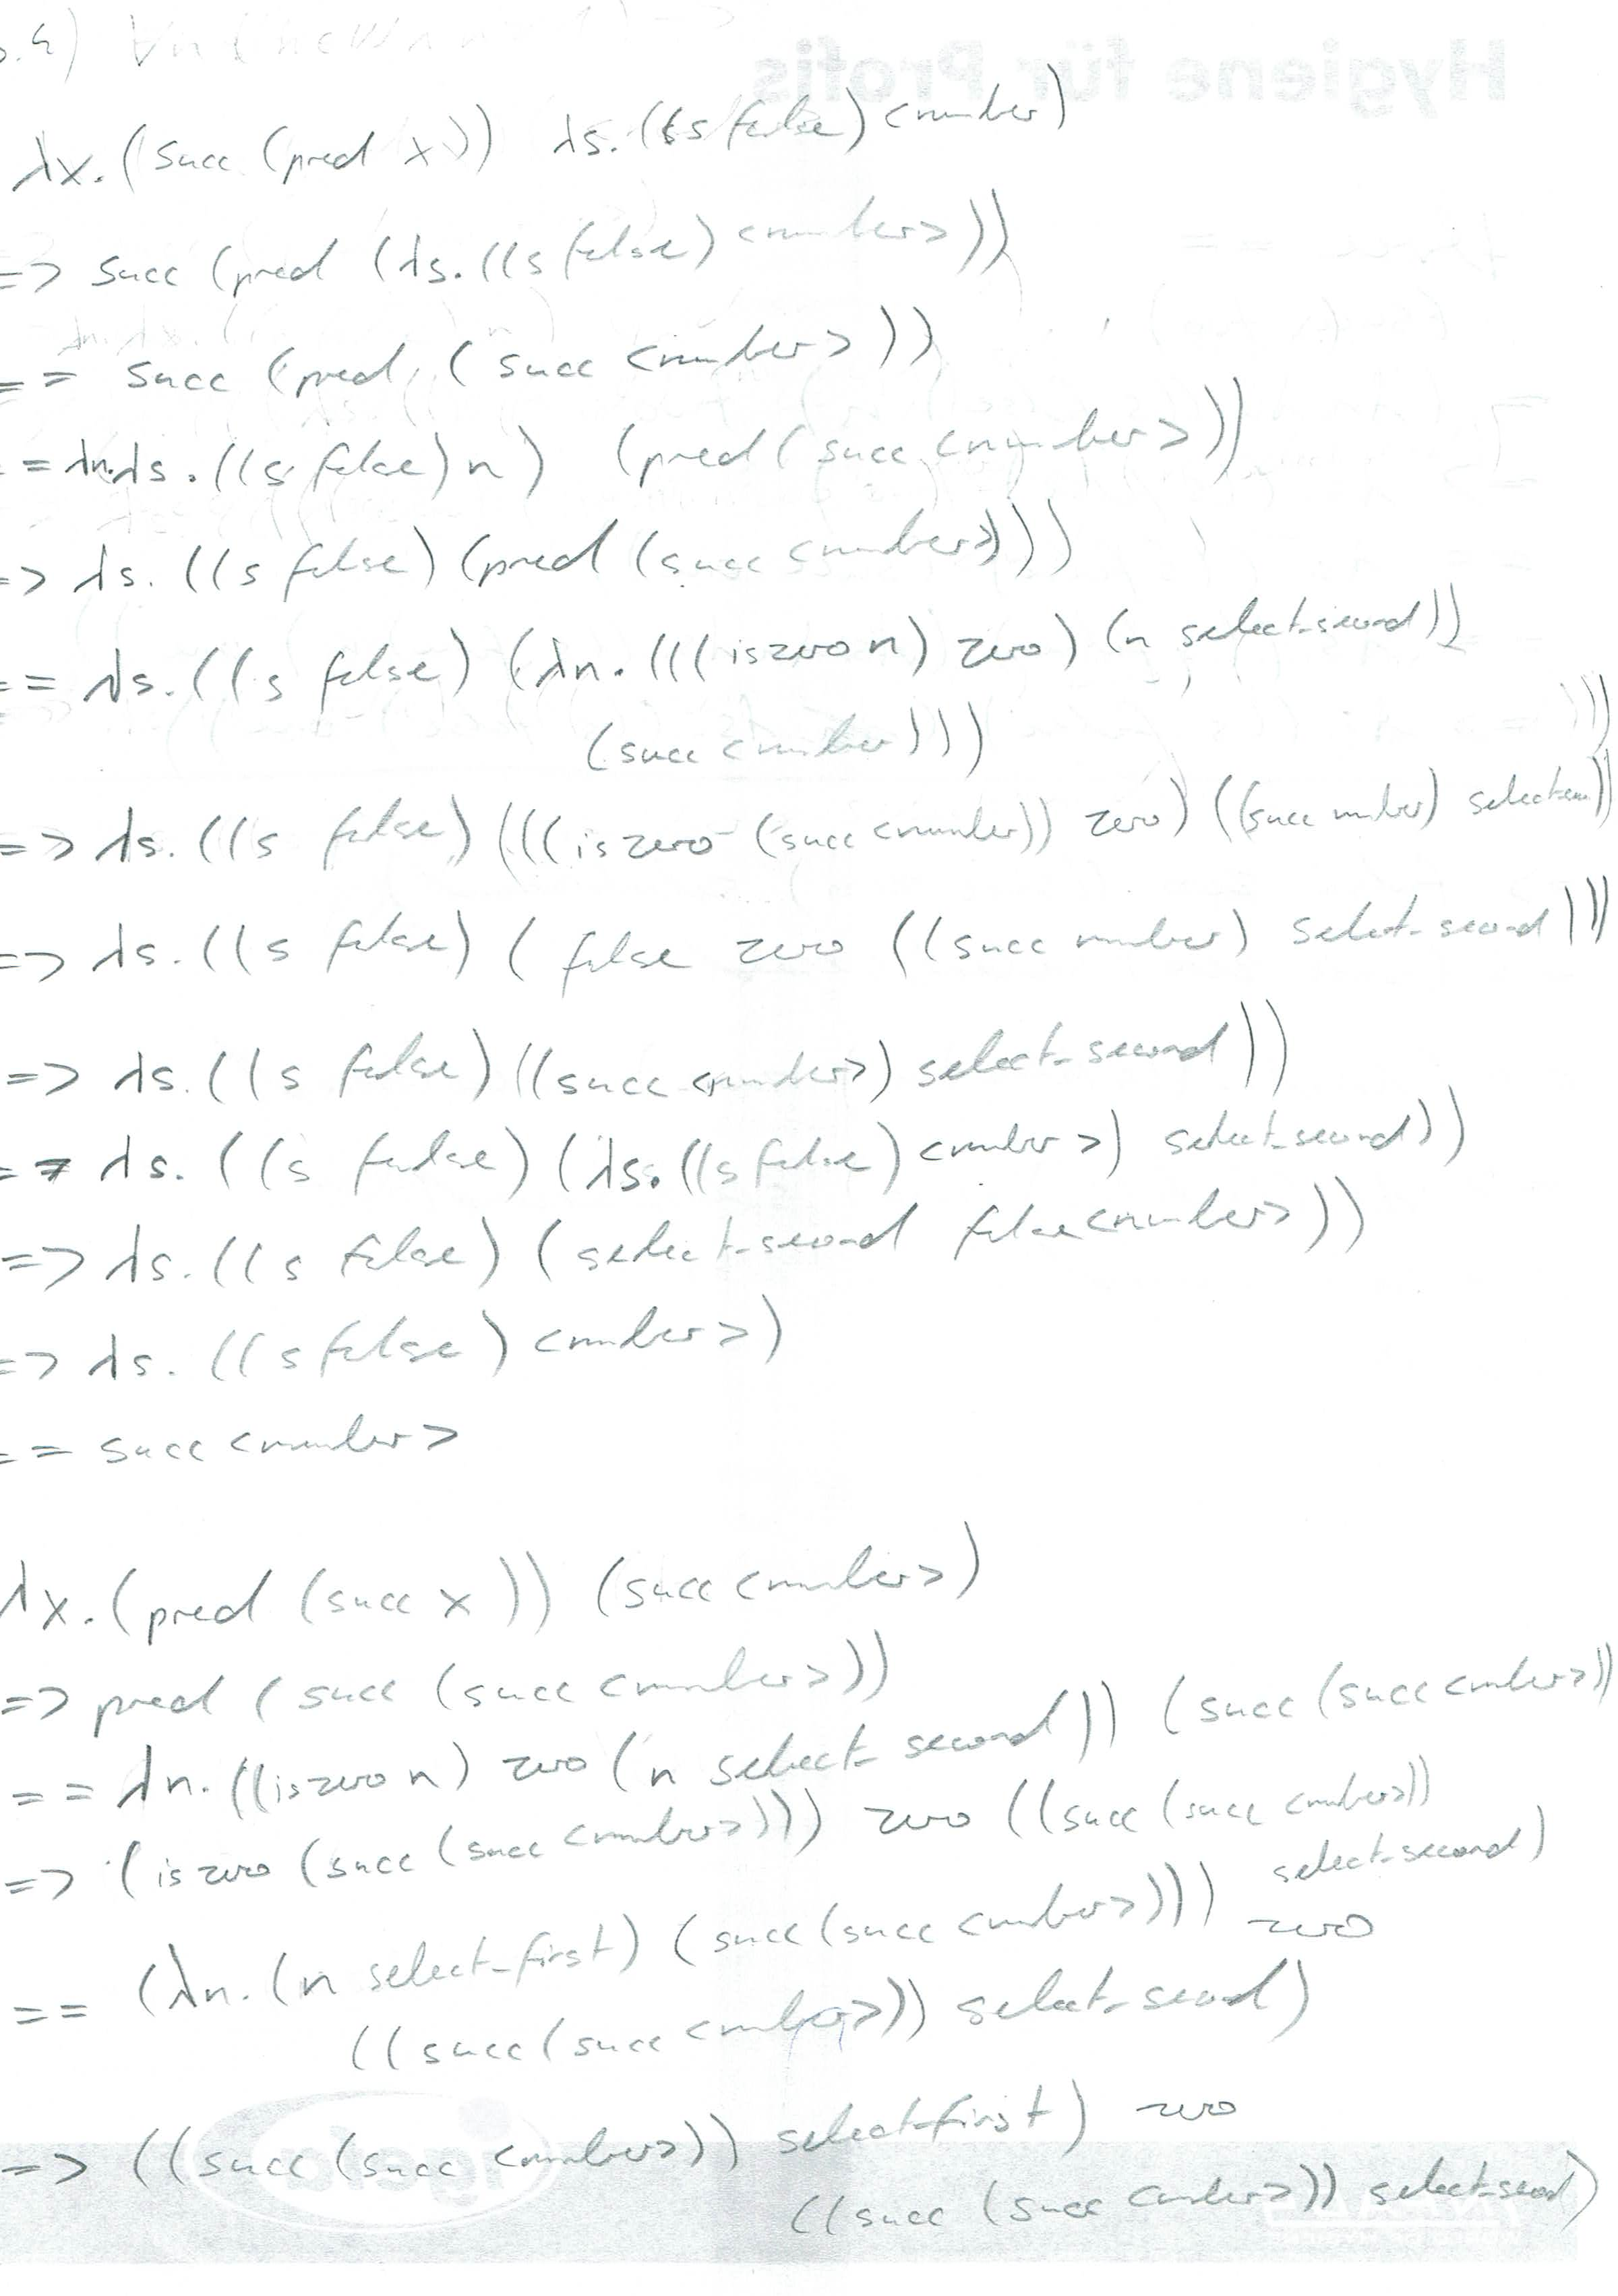 Hygiene für Profis
λx.(succ (pred x)) λs.((s false) <number)
=> succ (pred (λs.((s false) <number>))
== succ (pred (succ <number>))
== λn.λs.((s false) n) (pred (succ <number>))
=> λs.((s false) (pred (succ <number>)))
== λs.((s false) (λn.(((iszero n) zero) (n select-second))
(succ <number)))
=> λs.((s false) (((iszero (succ <number)) zero) ((succ number)
=> λs.((s false) (false zero ((succ number) select-second)))
=> λs.((s false) ((succ <number>) select-second))
== λs.((s false) (λs.((s false) <number>) select-second))
=> λs.((s false) (select-second false <number>))
=> λs.((s false) <number>)
== succ <number>
λx.(pred (succ x)) (succ <number>)
=> pred (succ (succ <number>))
== λn.((iszero n) zero (n select-second)) (succ (succ <number>))
=> (iszero (succ (succ <number>))) zero ((succ (succ <number>))
select-second)
== (λn.(n select-first) (succ (succ <number>))) zero
((succ (succ <number>)) select-second)
=> ((succ (succ <number>)) select-first) zero
((succ (succ <number>)) select-second)